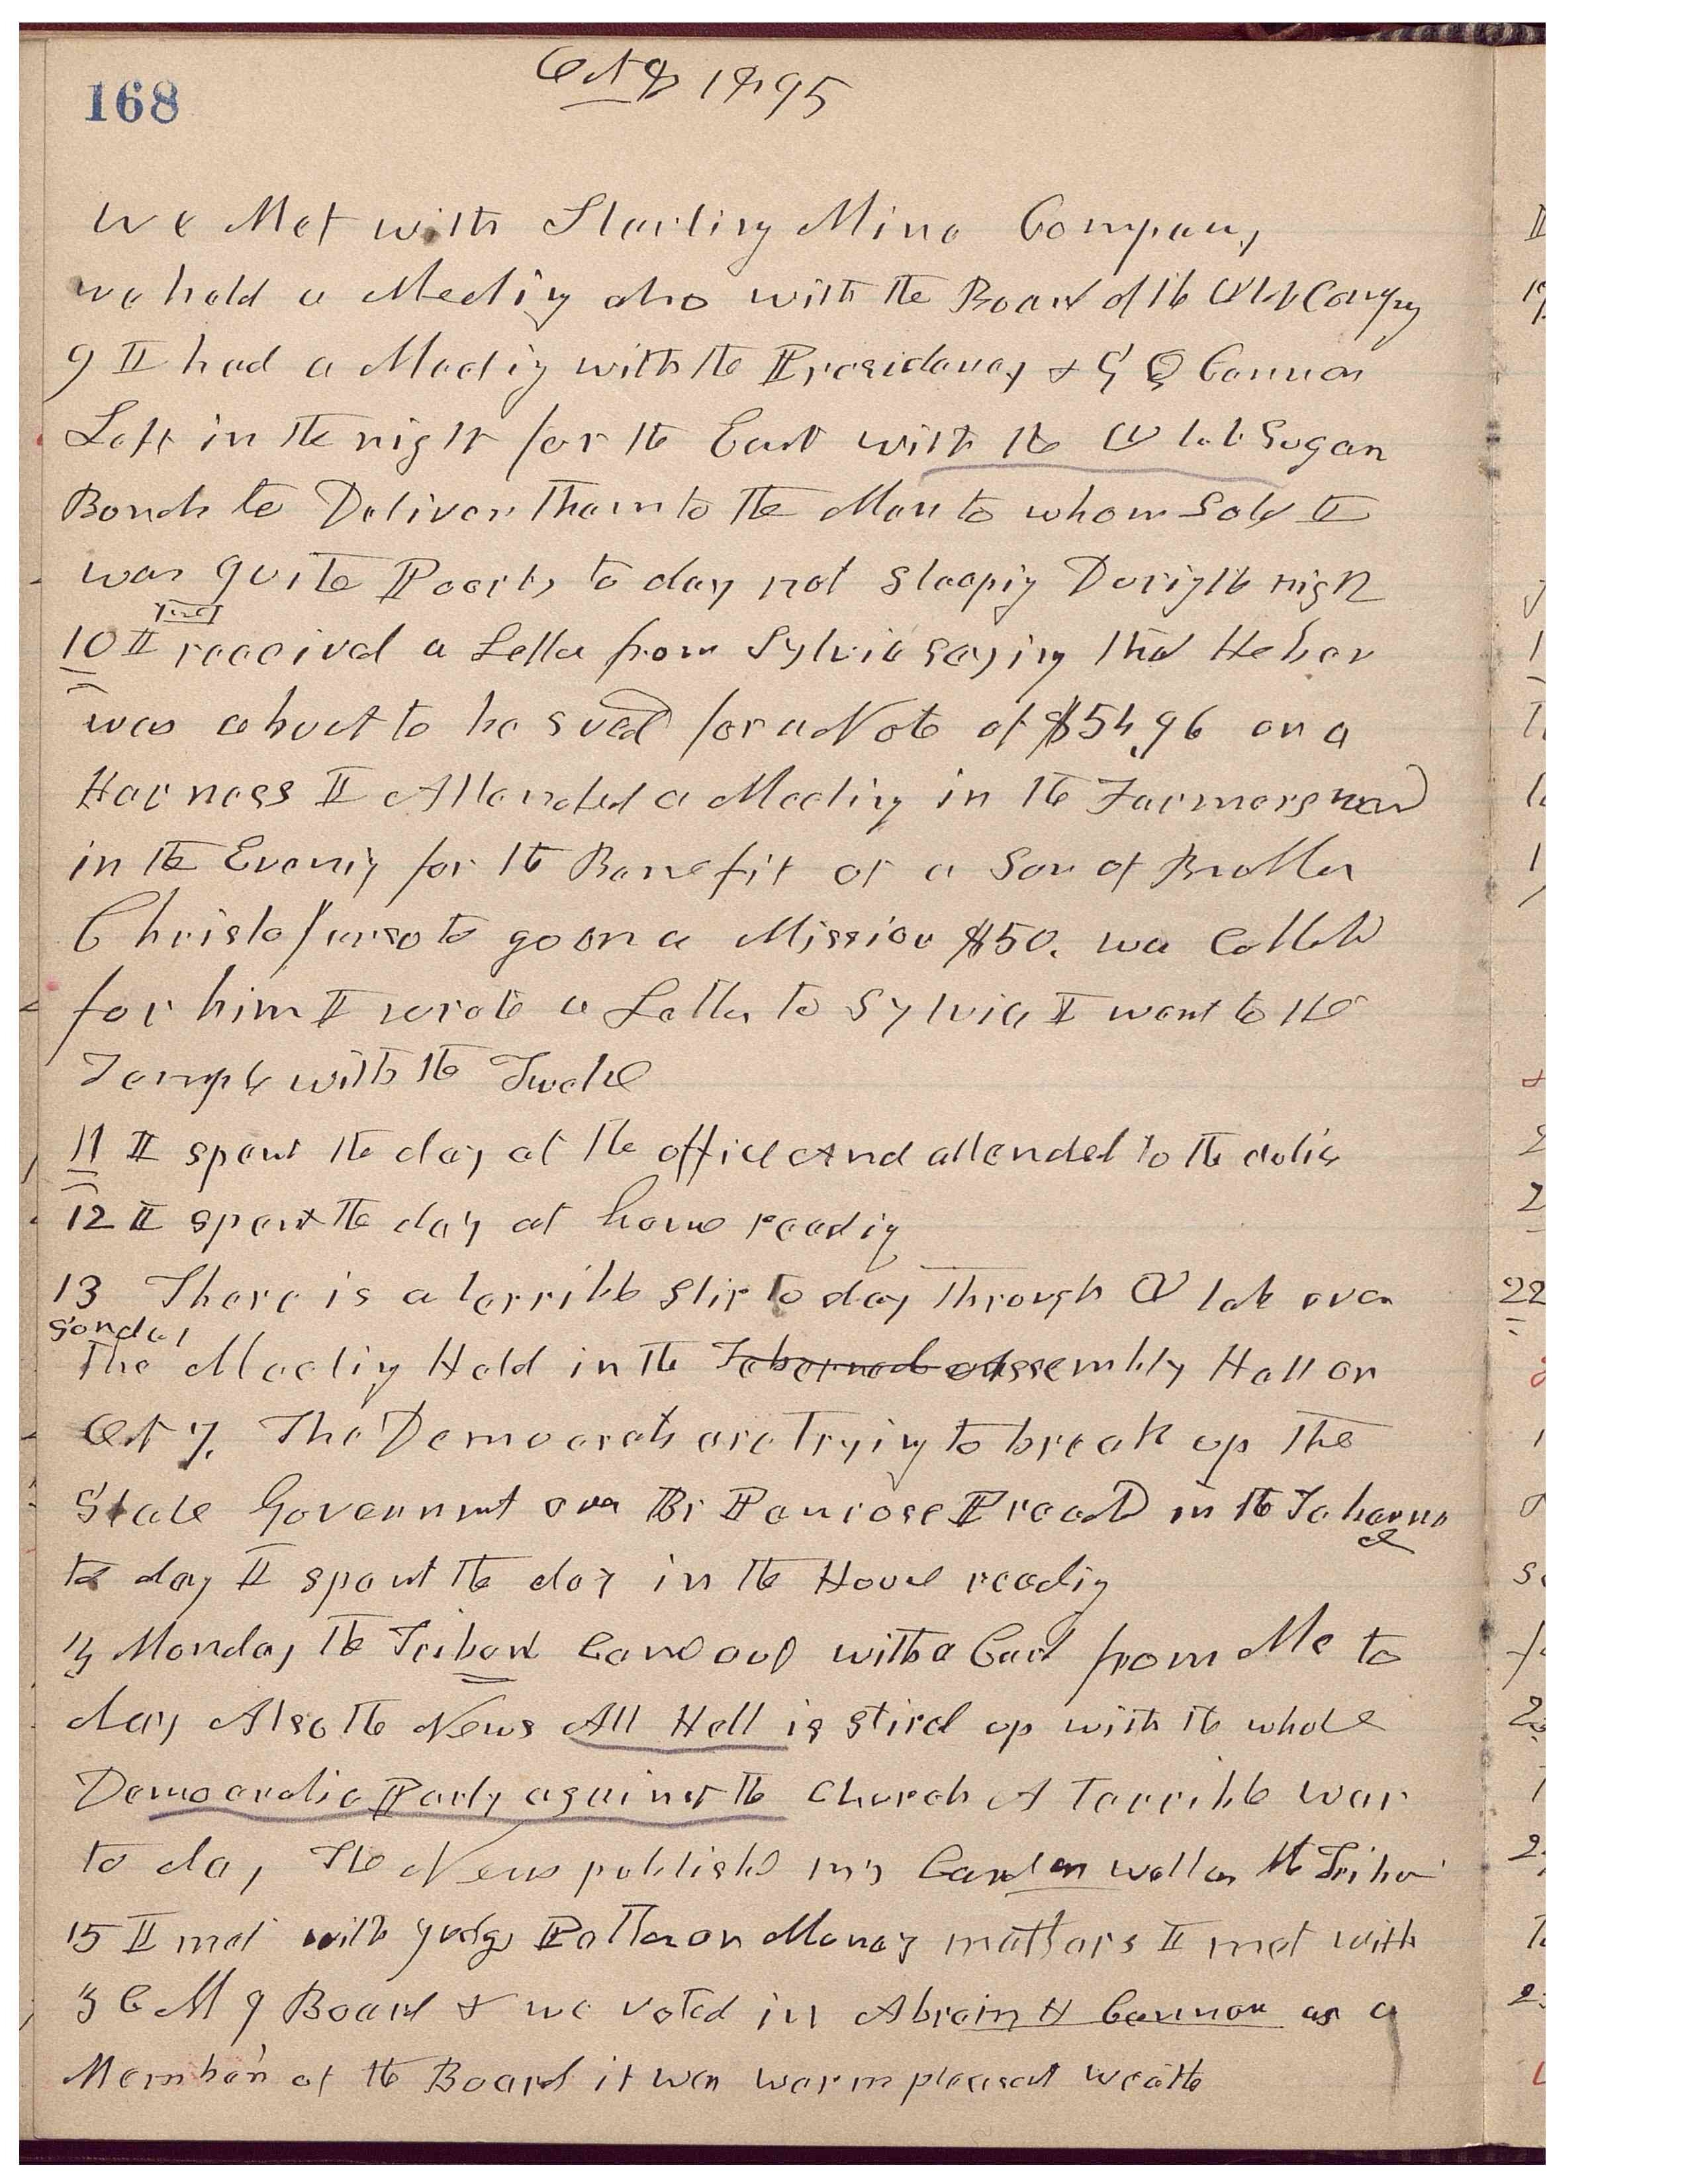 168
Oct 8 1895
We Met with Starling Mine Company
we held a Meeting also with the Board of the Utah Company
9 I had a Meeting with the Presidency & G Q Cannon
Left in the night for the East with the Utah Sugar
Bonds to Deliver them to the Man to whom Sold I
was quite Poorly to day not sleeping During the night
10 I received a Letter from Sylvia saying that Heber
was about to be sued for a Note of $54,96 on a
Harness I Attended a Meeting in the Farmers ward
in the Evening for the Benefit of a Son of Brother
Christoferso to go on a Mission $50. was Collected
for him I wrote a Letter to Sylvia I went to the
Temple with the Twelve
11 I spent the day at the office And attended to the duties
12 I spent the day at home reading
13 There is a terrible stir to day through Utah over
Sunday
the Meeting Held in the Tabernacle Assembly Hall on
Oct 7. The Democrats are Trying to break up the
State Government over Br Penrose Preach in the Tabernacle
to day I spent the day in the House reading
14 Monday the Tribune Came out with a Card from Me to
day Also the News All Hell is stired up with the whole
Democratic Party against the Church A Terrible war
to day, The News published my Card as well as the Tribune
15 I met with Judge on Money matters I met with
Z C M I Board & we voted in Abram H Cannon as a
Member of the Board it was warm pleasant weather